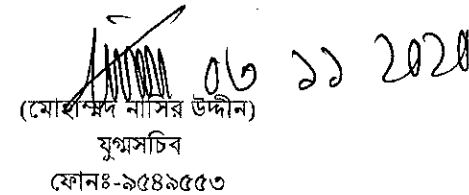 ০৩ ১১ ২০২০
(মোহাম্মদ নাসির উদ্দীন)
যুগ্মসচিব
ফোনঃ-৯৫৪৯৫৫৩